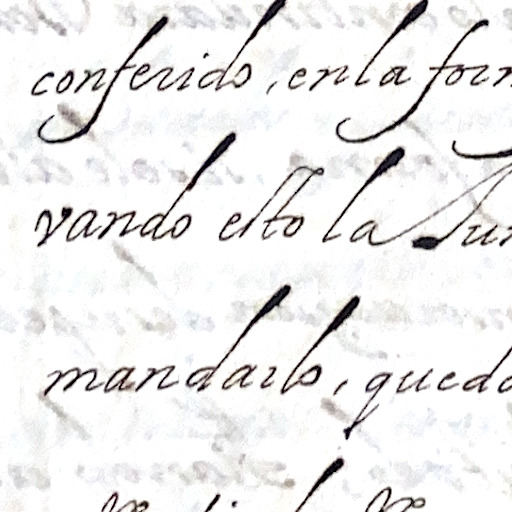 conferido, en la for
vando esto la Jun
mandarlo, quedo